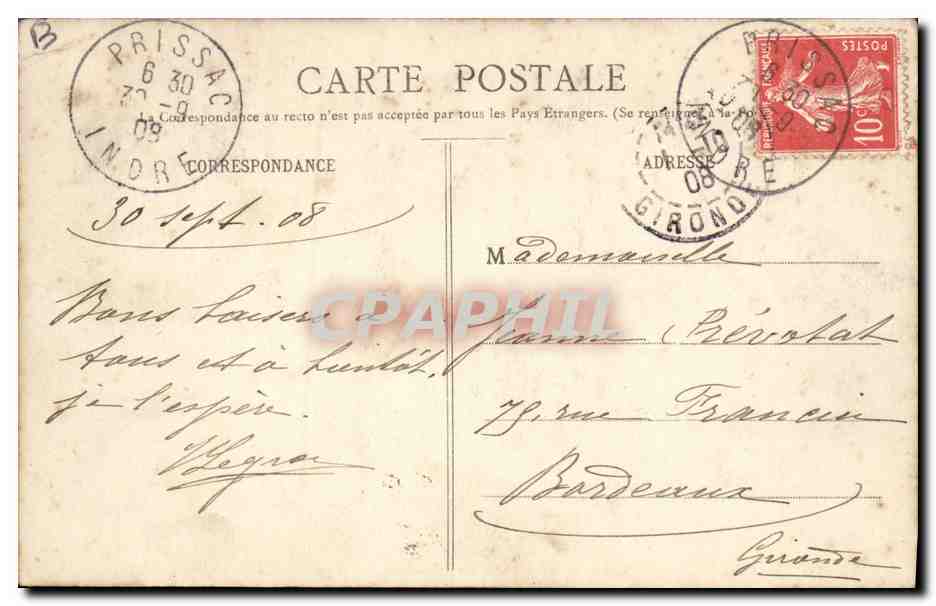 B
PRISSAC
6 30
30 -9
08
INDRE
CARTE POSTALE
La Correspondance au recto n'est pas acceptée par tous les Pays Étrangers. (Se renseigner à la Poste
CORRESPONDANCE
ADRESSE
POSTES
10c
PRISSAC
INDRE
08
GIRONDE
30 sept. 08
Bons baisers à
tous et à bientôt,
je l'espère.
Mademoiselle
Jeanne Prévotat
75, rue Francin
Bordeaux
Gironde
CPAPHIL